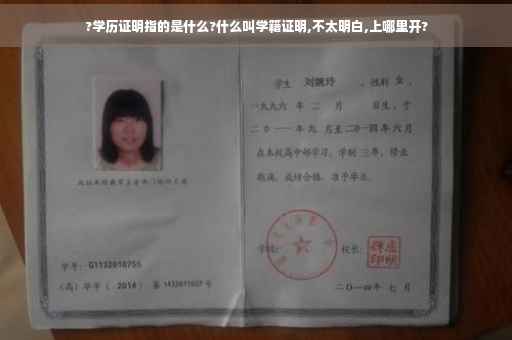 ?学历证明指的是什么?什么叫学籍证明,不太明白,上哪里开?
学生 刘婉玲 ,性别 女 ,
一九九六 年 二 月 日生,于
二〇一一年九 月至二〇一四年六月
在本校高中部学习,学制 三年,修业
期满,成绩合格,准予毕业。
学校:
校长:
学号: G1132010755
(高)毕字( 2014 )第 1432011027 号
二〇一四年 七 月